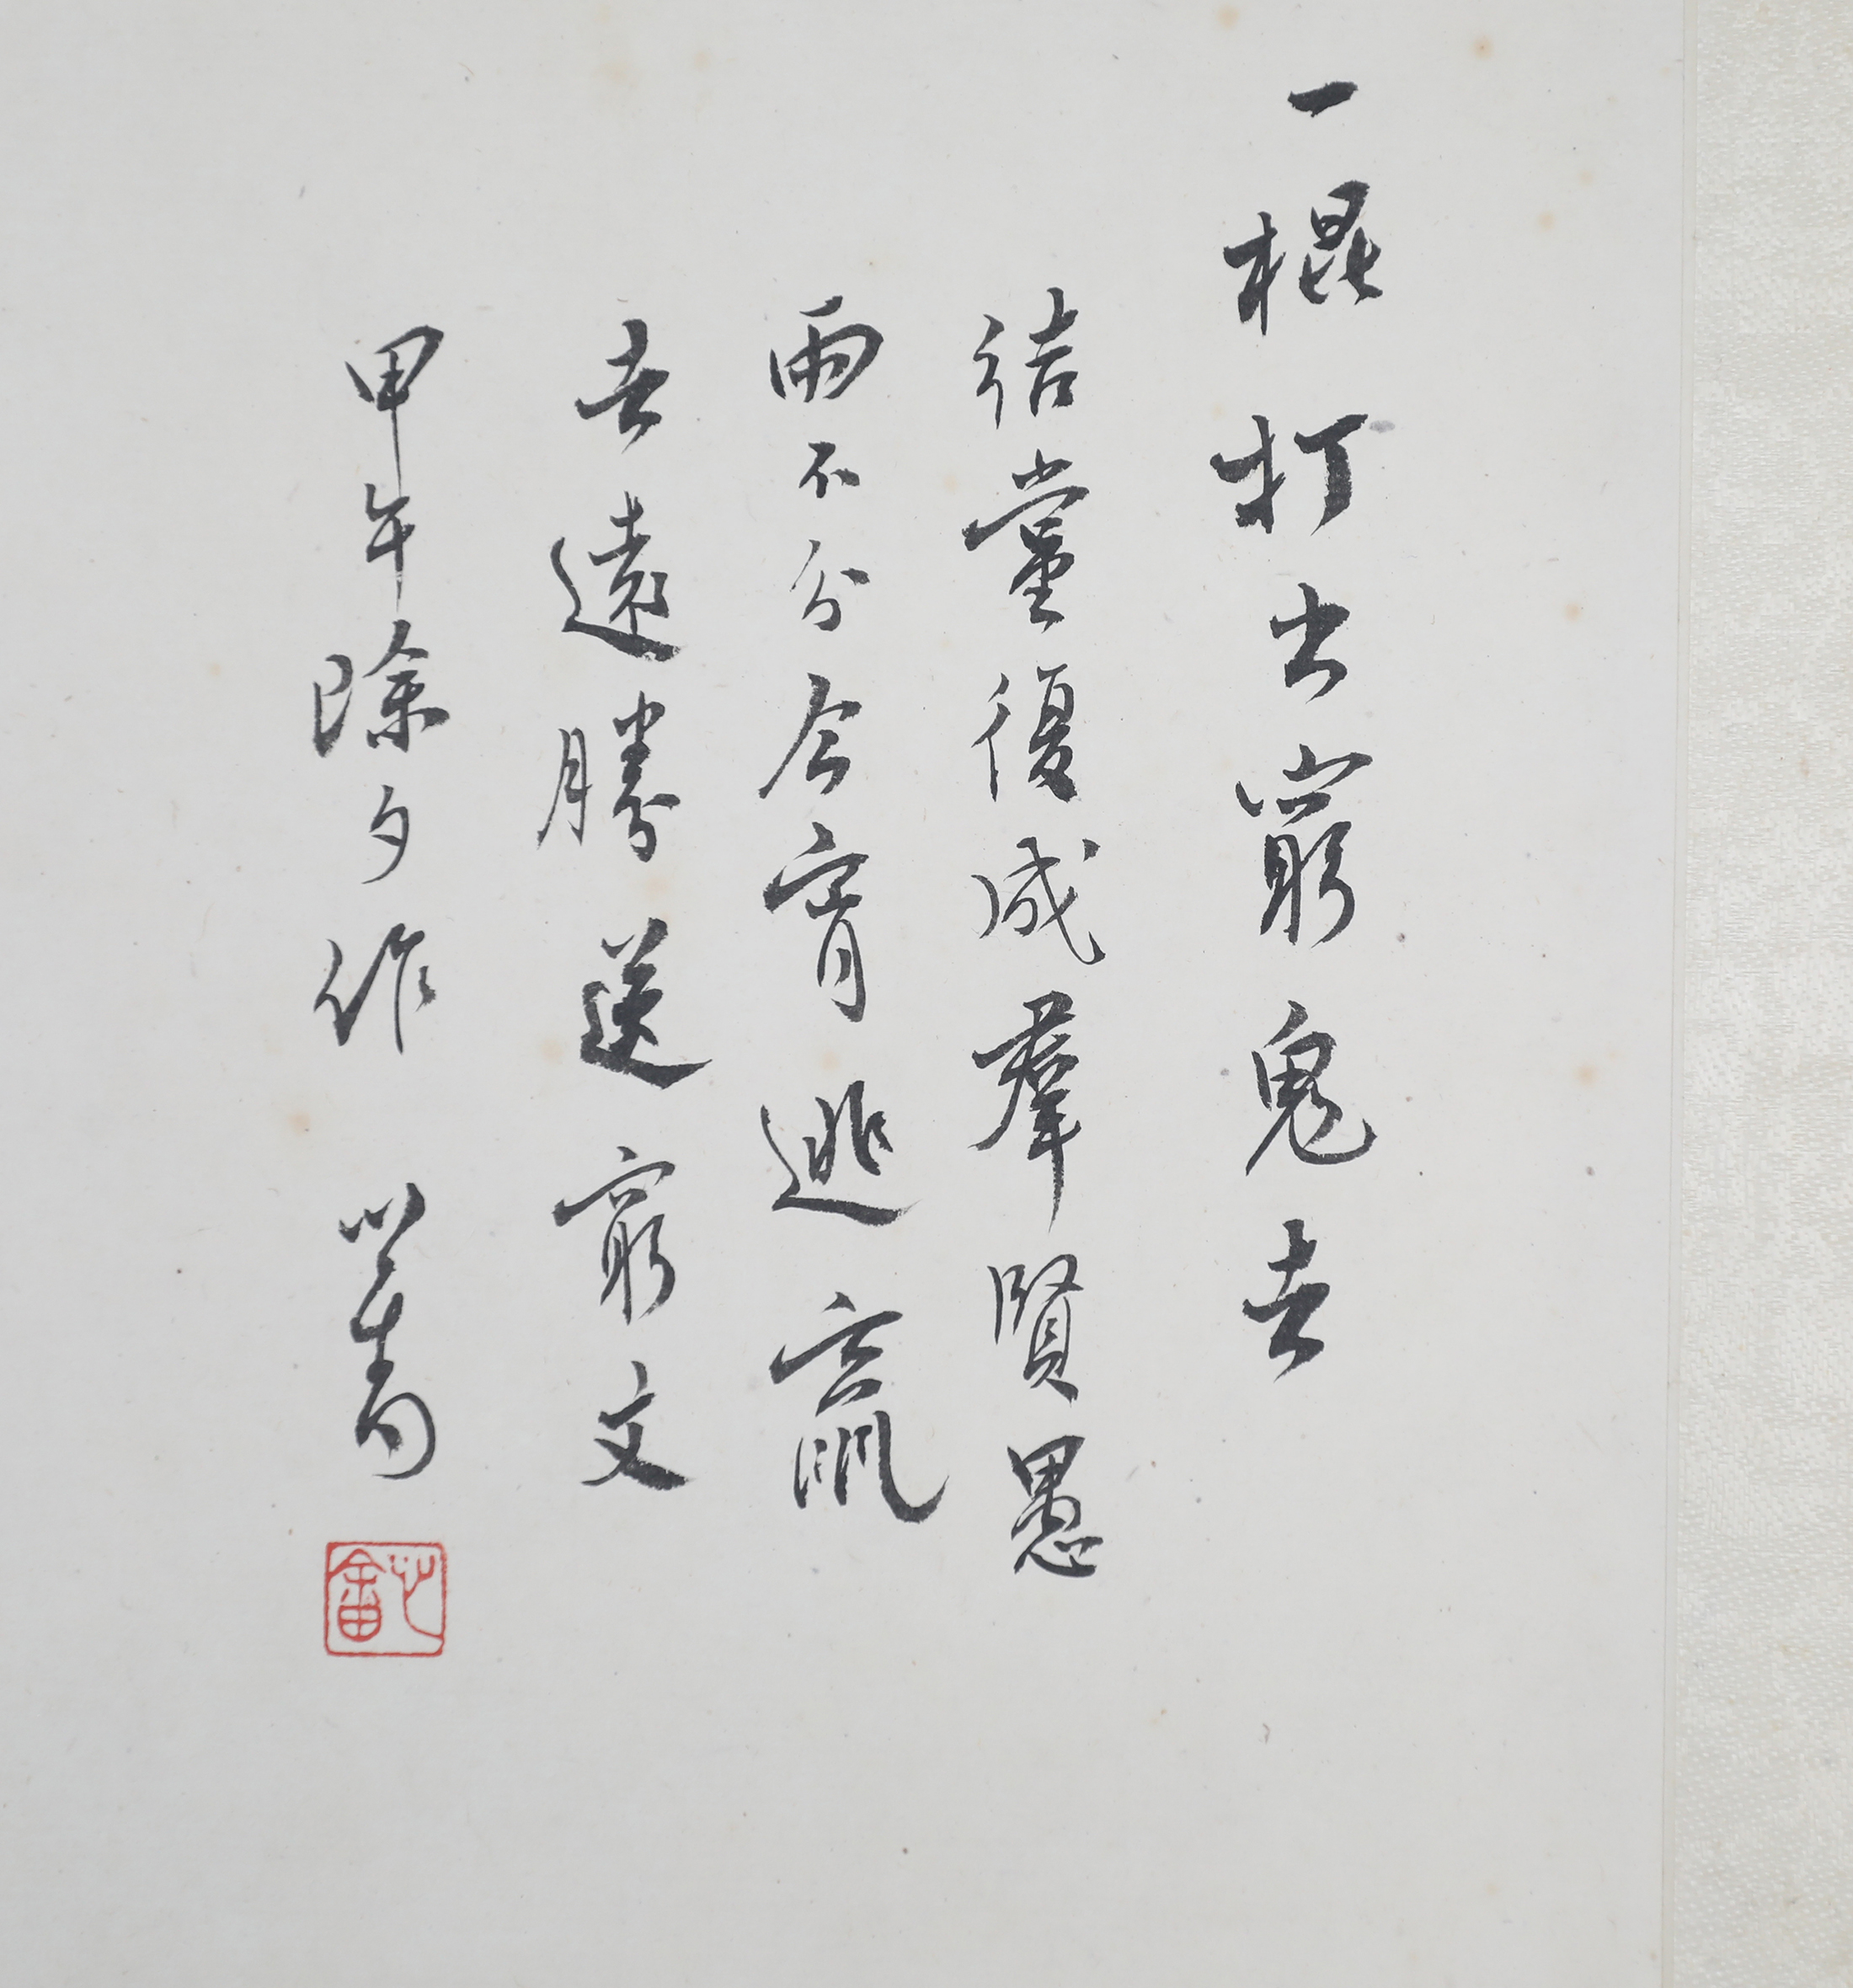 一棍打出窮鬼去
結黨復成羣賢愚
兩不分今宵逃䆿
去遠勝送窮文
甲午除夕作 心畬